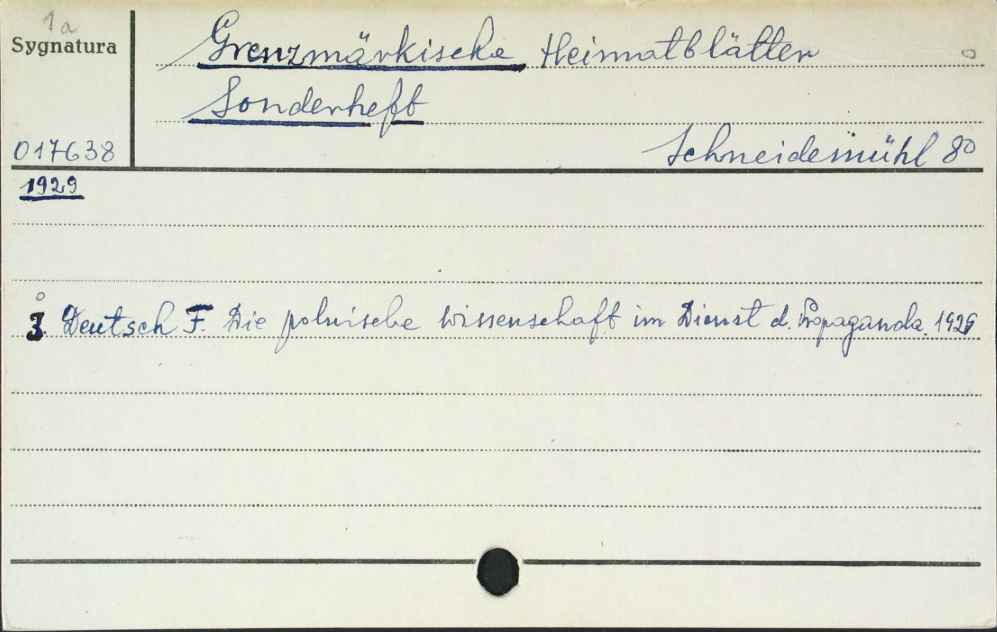 1a
Sygnatura
Grenzmärkische Heimatblätter
Sonderheft
017638
Schneidemühl 8º
1929
3. Deutsch F. Die polnische Wissenschaft im Dienst d. Propaganda. 1929